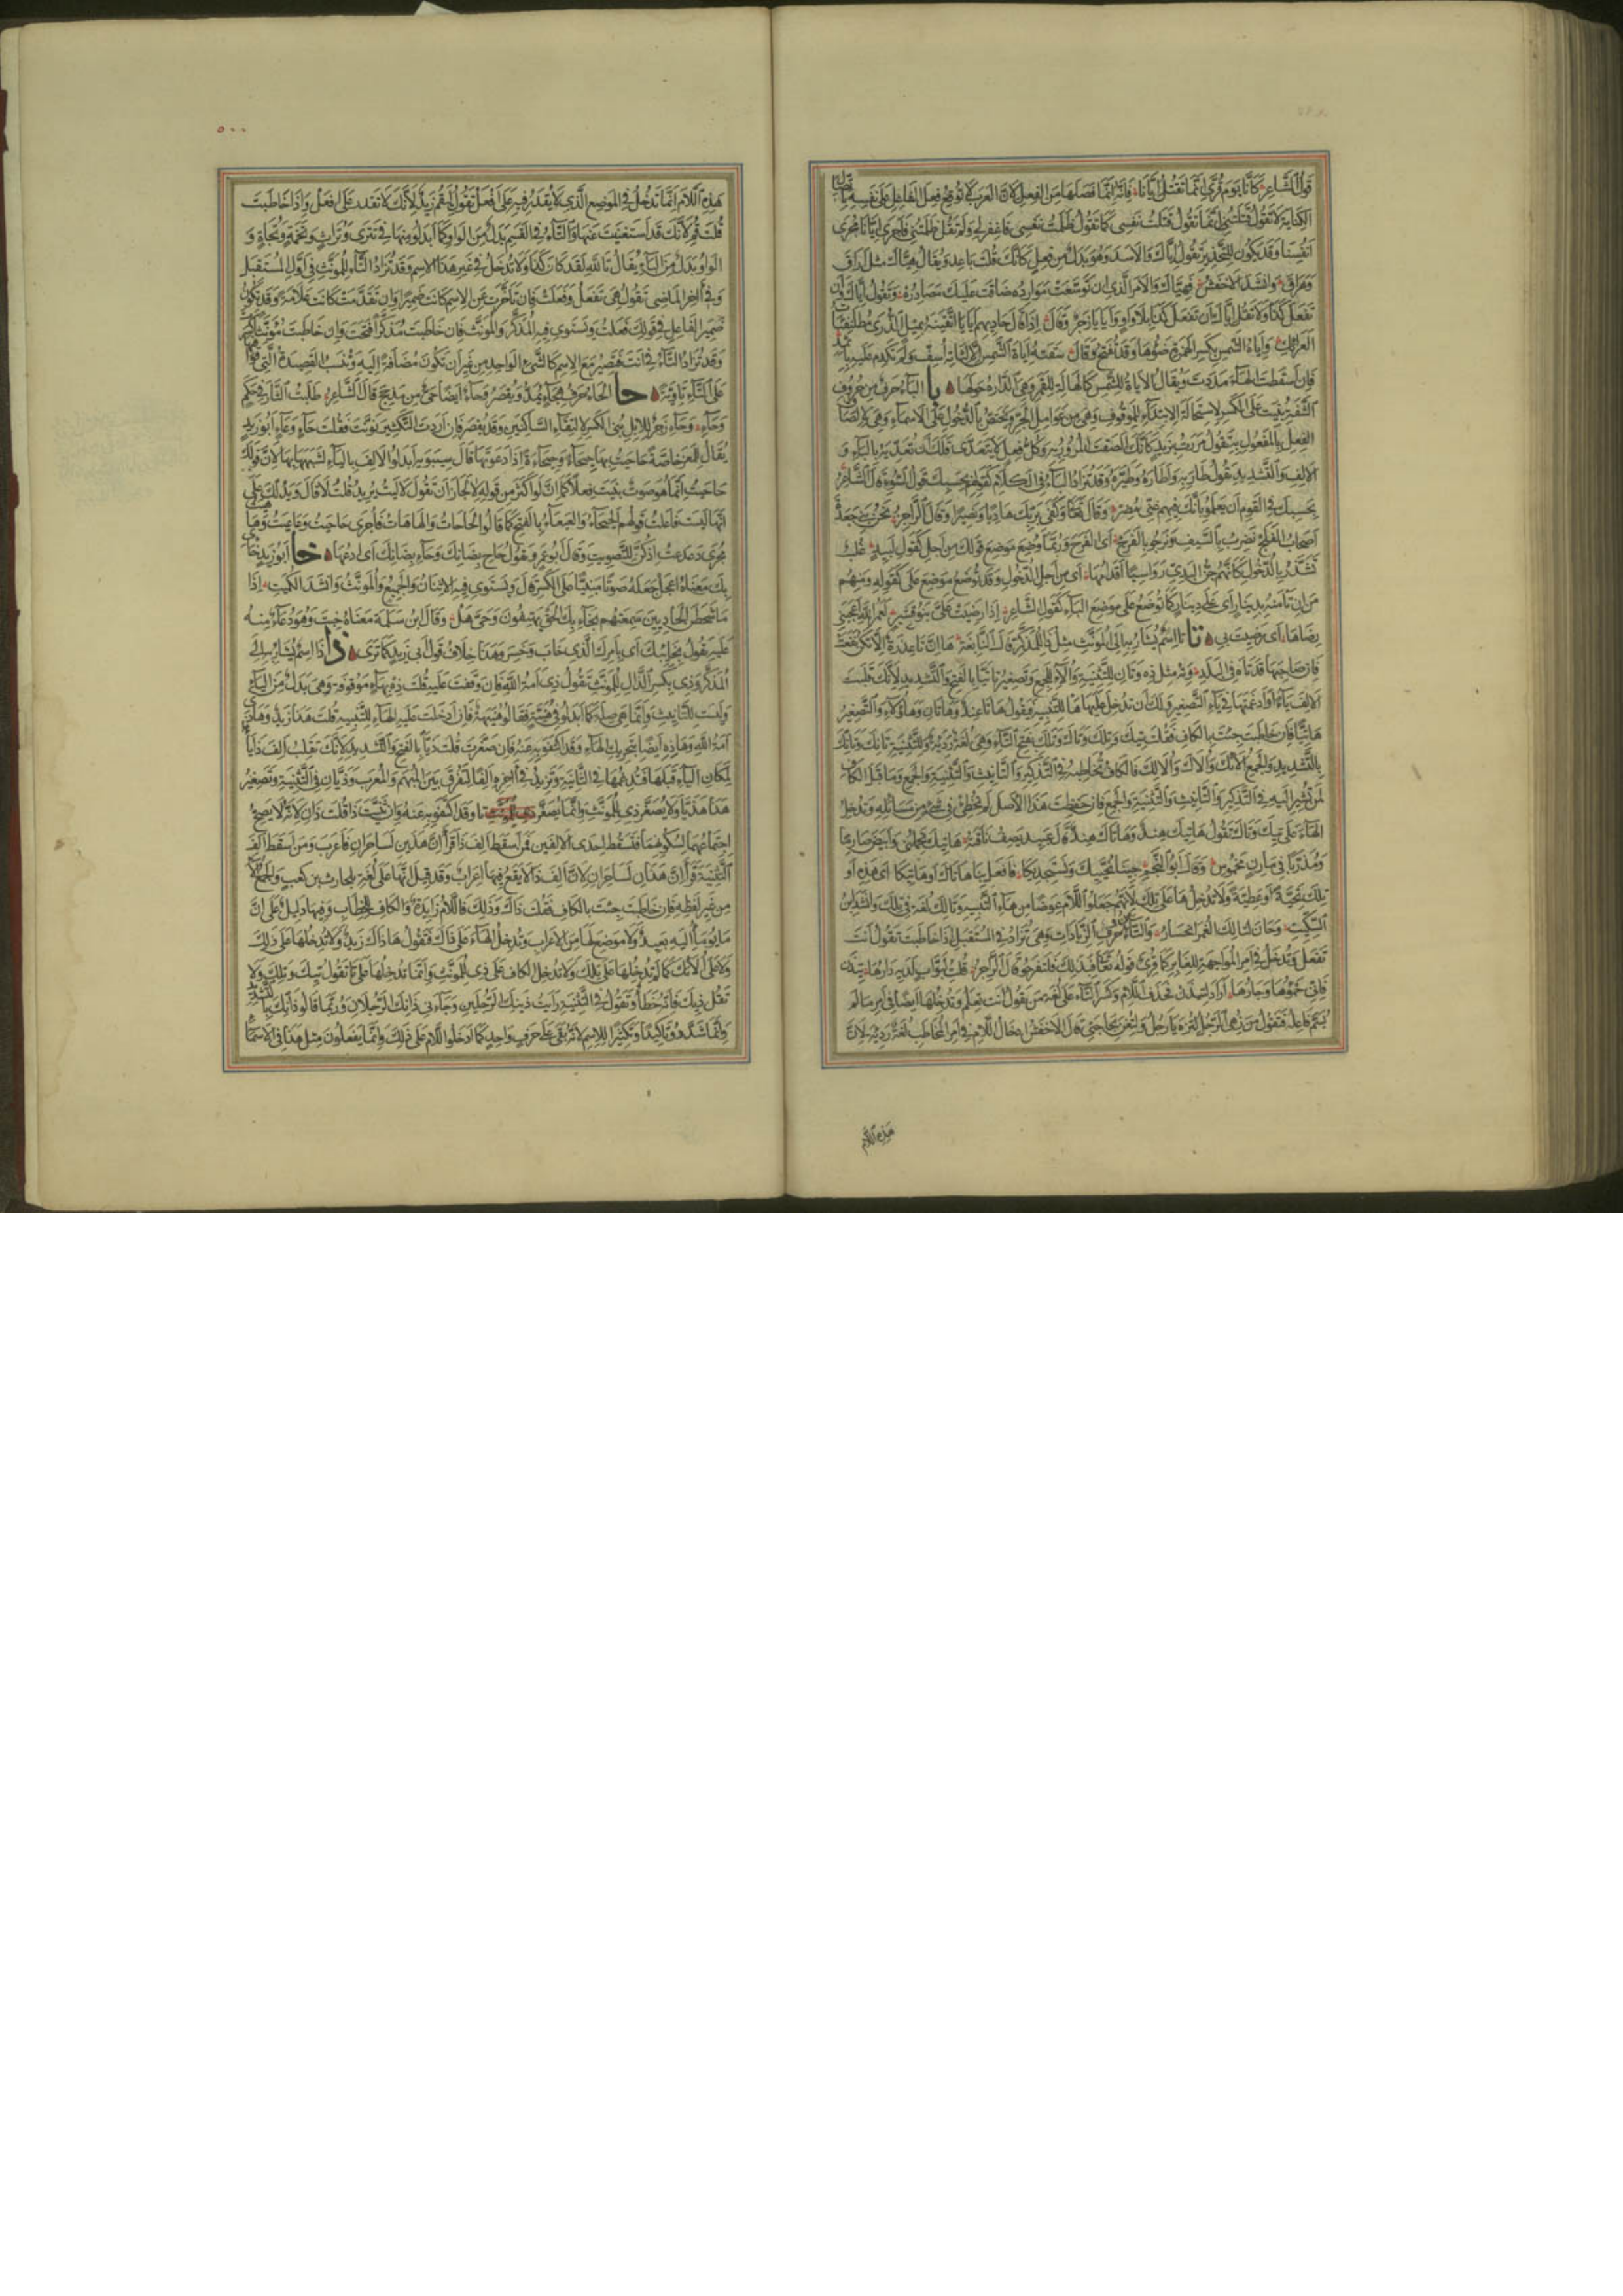 قول الشاعر كأنا يوم قرى إنما نقتل إيانا فإنه إنما فصلها من الفعل لأن العرب لا توقع فعل الفاعل على نفسه باتصال
الكناية لا تقول قتلتني إنما تقول قتلت نفسي كما تقول ظلمت نفسي فاغفر لي ولم تقل ظلمتني فأجرى إيانا مجرى
أنفسنا وقد يكون للتحذير تقول إياك والأسد وهو بدل من فعل كأنك قلت باعد ويقال هياك مثل أراق
وهراق وانشد الأخفش فهياك والأمر الذي إن توسعت موارده ضاقت عليك مصادره وتقول إياك وأن
تفعل كذا ولا تقل إياك أن تفعل كذا بلا واو وأيايا زجر وقال إذا قال حاديهم أيايا اتقينه بمثل الذرى مطلنفئات
العرائك وإياة الشمس بكسر الهمزة ضوءها وقد تفتح وقال سقته إياة الشمس إلا لثاته أسف ولم تكدم عليه بإثمد
فإن أسقطت الهاء مددت ويقال الأياة للشمس كالهالة للقمر وهي الدارة حولها با الباء حرف من حروف
الشفة بنيت على الكسر لاستحالة الابتداء بالموقوف وهي من عوامل الجر وتختص بالدخول على الأسماء وهي لإلصاق
الفعل بالمفعول به تقول مررت بزيد كأنك ألصقت المرور به وكل فعل لا يتعدى فلك أن تعديه بالباء و
الألف والتشديد تقول طار به وأطاره وطيره وقد تزاد الباء في الكلام كقولهم بحسبك قول السوء قال الشاعر
بحسبك في القوم أن يعلموا بأنك فيهم غني مضر وقال تعالى وكفى بربك هاديا ونصيرا وقال الراجز نحن بنو جعدة
أصحاب الفلج نضرب بالسيف ونرجو بالفرج أي الفرج وربما وضع موضع قولك من أجل كقول لبيد غلب
تشذر بالذحول كأنهم جن البدي رواسيا أقدامها أي من أجل الذحول وقد توضع موضع على كقوله ومنهم
من إن تأمنه بدينار أي على دينار كما توضع على موضع الباء كقول الشاعر إذا رضيت علي بنو قشير لعمر الله أعجبني
رضاها أي رضيت بي تا تا اسم يشار به إلى المؤنث مثل ذا للمذكر قال النابغة ها إن تا عذرة إلا تكن نفعت
فإن صاحبها قد تاه في البلد وته مثل ذه وتان للتثنية وأولاء للجمع وتصغير تا تيا بالفتح والتشديد لأنك قلبت
الألف ياء وأدغمتها في ياء التصغير ولك أن تدخل عليها ها للتنبيه فتقول هاتا هند وهاتان وهاؤلاء والتصغير
هاتيا فإن خاطبت جئت بالكاف فقلت تيك وتلك وتاك وتلك بفتح التاء وهي لغة ردية وللتثنية تانك وتانك
بالتشديد والجمع أولئك وأولاك وأولالك فالكاف لمن تخاطبه في التذكير والتأنيث والتثنية والجمع وما قبل الكاف
لمن تشير إليه في التذكير والتأنيث والتثنية والجمع فإن حفظت هذا الأصل لم تخطئ في شيء من مسائله وتدخل
الهاء على تيك وتاك تقول هاتيك هند وهاتاك هند قال عبيد يصف ناقة هاتيك تحملني وأبيض صارما
ومذربا في مارن مخموس وقال أبو النجم جئنا نحييك ونستجديكا فافعل بنا هاتاك أو هاتيكا أي هذه أو
تلك تحية أو عطية ولا تدخل ها على تلك لأنهم جعلوا اللام عوضا من هاء التنبيه وتالك لغة في تلك وانشد ابن
السكيت وحان لتالك الغمر انحسار والتاء من حروف الزيادات وهي تزاد في المستقبل إذا خاطبت تقول أنت
تفعل وتدخل في أمر المواجهة للغابر كما قرئ قوله تعالى فبذلك فلتفرحوا قال الراجز قلت لبواب لديه دارها تيذن
فإني حموها وجارها أراد لتيذن فحذف اللام وكسر التاء على لغة من يقول أنت تعلم وتدخلها أيضا في أمر ما لم
يسم فاعله فتقول من زهي الرجل لتزه يا رجل ولتعن بحاجتي قال الأخفش إدخال اللام في أمر المخاطب لغة ردية لأن
هذه اللام
٥٠٠
هذه اللام إنما تدخل في الموضع الذي لا يقدر فيه على أفعل تقول ليقم زيد لأنك لا تقدر على افعل وإذا خاطبت
قلت قم لأنك قد استغنيت عنها والتاء في القسم بدل من الواو كما أبدلوا منها في تترى وتراث وتخمة وتجاه و
الواو بدل من الباء يقال تالله لقد كان كذا ولا تدخل في غير هذا الاسم وقد تزاد التاء للمؤنث في أول المستقبل
وفي آخر الماضي تقول هي تفعل وفعلت فإن تأخرت عن الاسم كانت ضميرا وإن تقدمت كانت علامة وقد تكون
ضمير الفاعل في قولك فعلت ويستوي فيه المذكر والمؤنث فإن خاطبت مذكرا فتحت وإن خاطبت مؤنثا كسرت
وقد تزاد التاء في أنت فتصير مع الاسم كالشيء الواحد من غير أن تكون مضافة إليه وتنسب القصيدة التي قوافيها
على التاء تاوية حا الحاء حرف هجاء يمد ويقصر وحاء أيضا حي من مذحج قال الشاعر طلبت الثأر في حكم
وحاء وحاء زجر للإبل بني على الكسر لالتقاء الساكنين وقد يقصر فإن أردت التنكير نونت فقلت حاء وعاء أبو زيد
يقال للمعز خاصة حاحيت بها حيحاء وحيحاءة إذا دعوتها قال سيبويه أبدلوا الألف بالياء لشبهها بها لأن قولك
حاحيت إنما هو صوت بنيت منه فعلا كما أن لو أكثر من قوله لا لجاز أن تقول لاليت يريد قلت لا قال ويدلك على
أنها ليست فاعلت قولهم الحيحاء والعيعاء بالفتح كما قالوا الحاحات والهاهات فأجرى حاحيت وعاعيت وهاهيت
مجرى دعدعت إذ كن للتصويت وقال أبو عمرو يقول حاح بضأنك وحاء بضأنك أي ادعها خا أبو زيد خاء
بك معناه اعجل جعله صوتا مبنيا على الكسر قال ويستوي فيه الاثنان والجميع والمؤنث وانشد الكميت إذا
ما شحطن الحاديين سمعتهم بخاء بك الحق يهتفون وحي هل وقال ابن سلمة معناه خبت وهو دعاء منه
عليه يقول بخائبك أي بأمرك الذي خاب وخسر وهذا خلاف قول أبي زيد كما ترى ذا ذا اسم يشار به إلى
المذكر وذي بكسر الذال للمؤنث تقول ذي أمة الله فإن وقفت عليه قلت ذه بهاء موقوفة وهي بدل من الياء
وليست للتأنيث وإنما هي صلة كما أبدلوا في هنية فقالوا هنيهة فإن أدخلت عليه الهاء للتنبيه قلت هذا زيد وهذي
أمة الله وهاذه أيضا بتحريك الهاء وقد اكتفوا به عنه فإن صغرت قلت ذيا بالفتح والتشديد لأنك تقلب ألف ذا ياء
لمكان الياء قبلها فتدغمها في الثانية وتزيد في آخره ألفا لتفرق بين المبهم والمعرب وذيان في التثنية وتصغير
هذا هذيا ولا يصغر ذي للمؤنث وإنما يصغر تا وقد اكتفوا به عنه وإن ثنيت ذا قلت ذان لأنه لا يصح
اجتماعهما لسكونهما فتسقط إحدى الألفين فمن أسقط ألف ذا قرأ إن هذين لساحران فأعرب ومن أسقط ألف
التثنية قرأ إن هذان لساحران لأن ألف ذا لا يقع فيها إعراب وقد قيل إنها على لغة بلحارث بن كعب والجمع أولاء
من غير لفظه فإن خاطبت جئت بالكاف فقلت ذاك وذلك فاللام زايدة والكاف للخطاب وفيها دليل على أن
ما يومأ إليه بعيد ولا موضع لها من الإعراب وتدخل الهاء على ذاك فتقول هاذاك زيد ولا تدخلها على ذلك
ولا على أولئك كما لم تدخلها على تلك ولا تدخل الكاف على ذي للمؤنث وإنما تدخلها على تا تقول تيك وتلك ولا
تقل ذيك فإنه خطأ وتقول في التثنية رأيت ذينك الرجلين وجاءني ذانك الرجلان وربما قالوا ذانك بالتشديد
وإنما شددوا تأكيدا وتكثيرا للاسم لأنه بقي على حرف واحد كما أدخلوا اللام على ذلك وإنما يفعلون مثل هذا في الأسماء